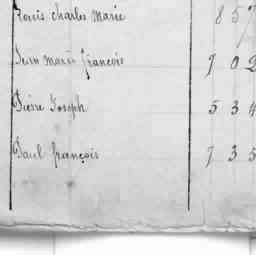 Louis charles Marie 857
Jean marie françois 902
Pierre Joseph 534
Paul françois 735